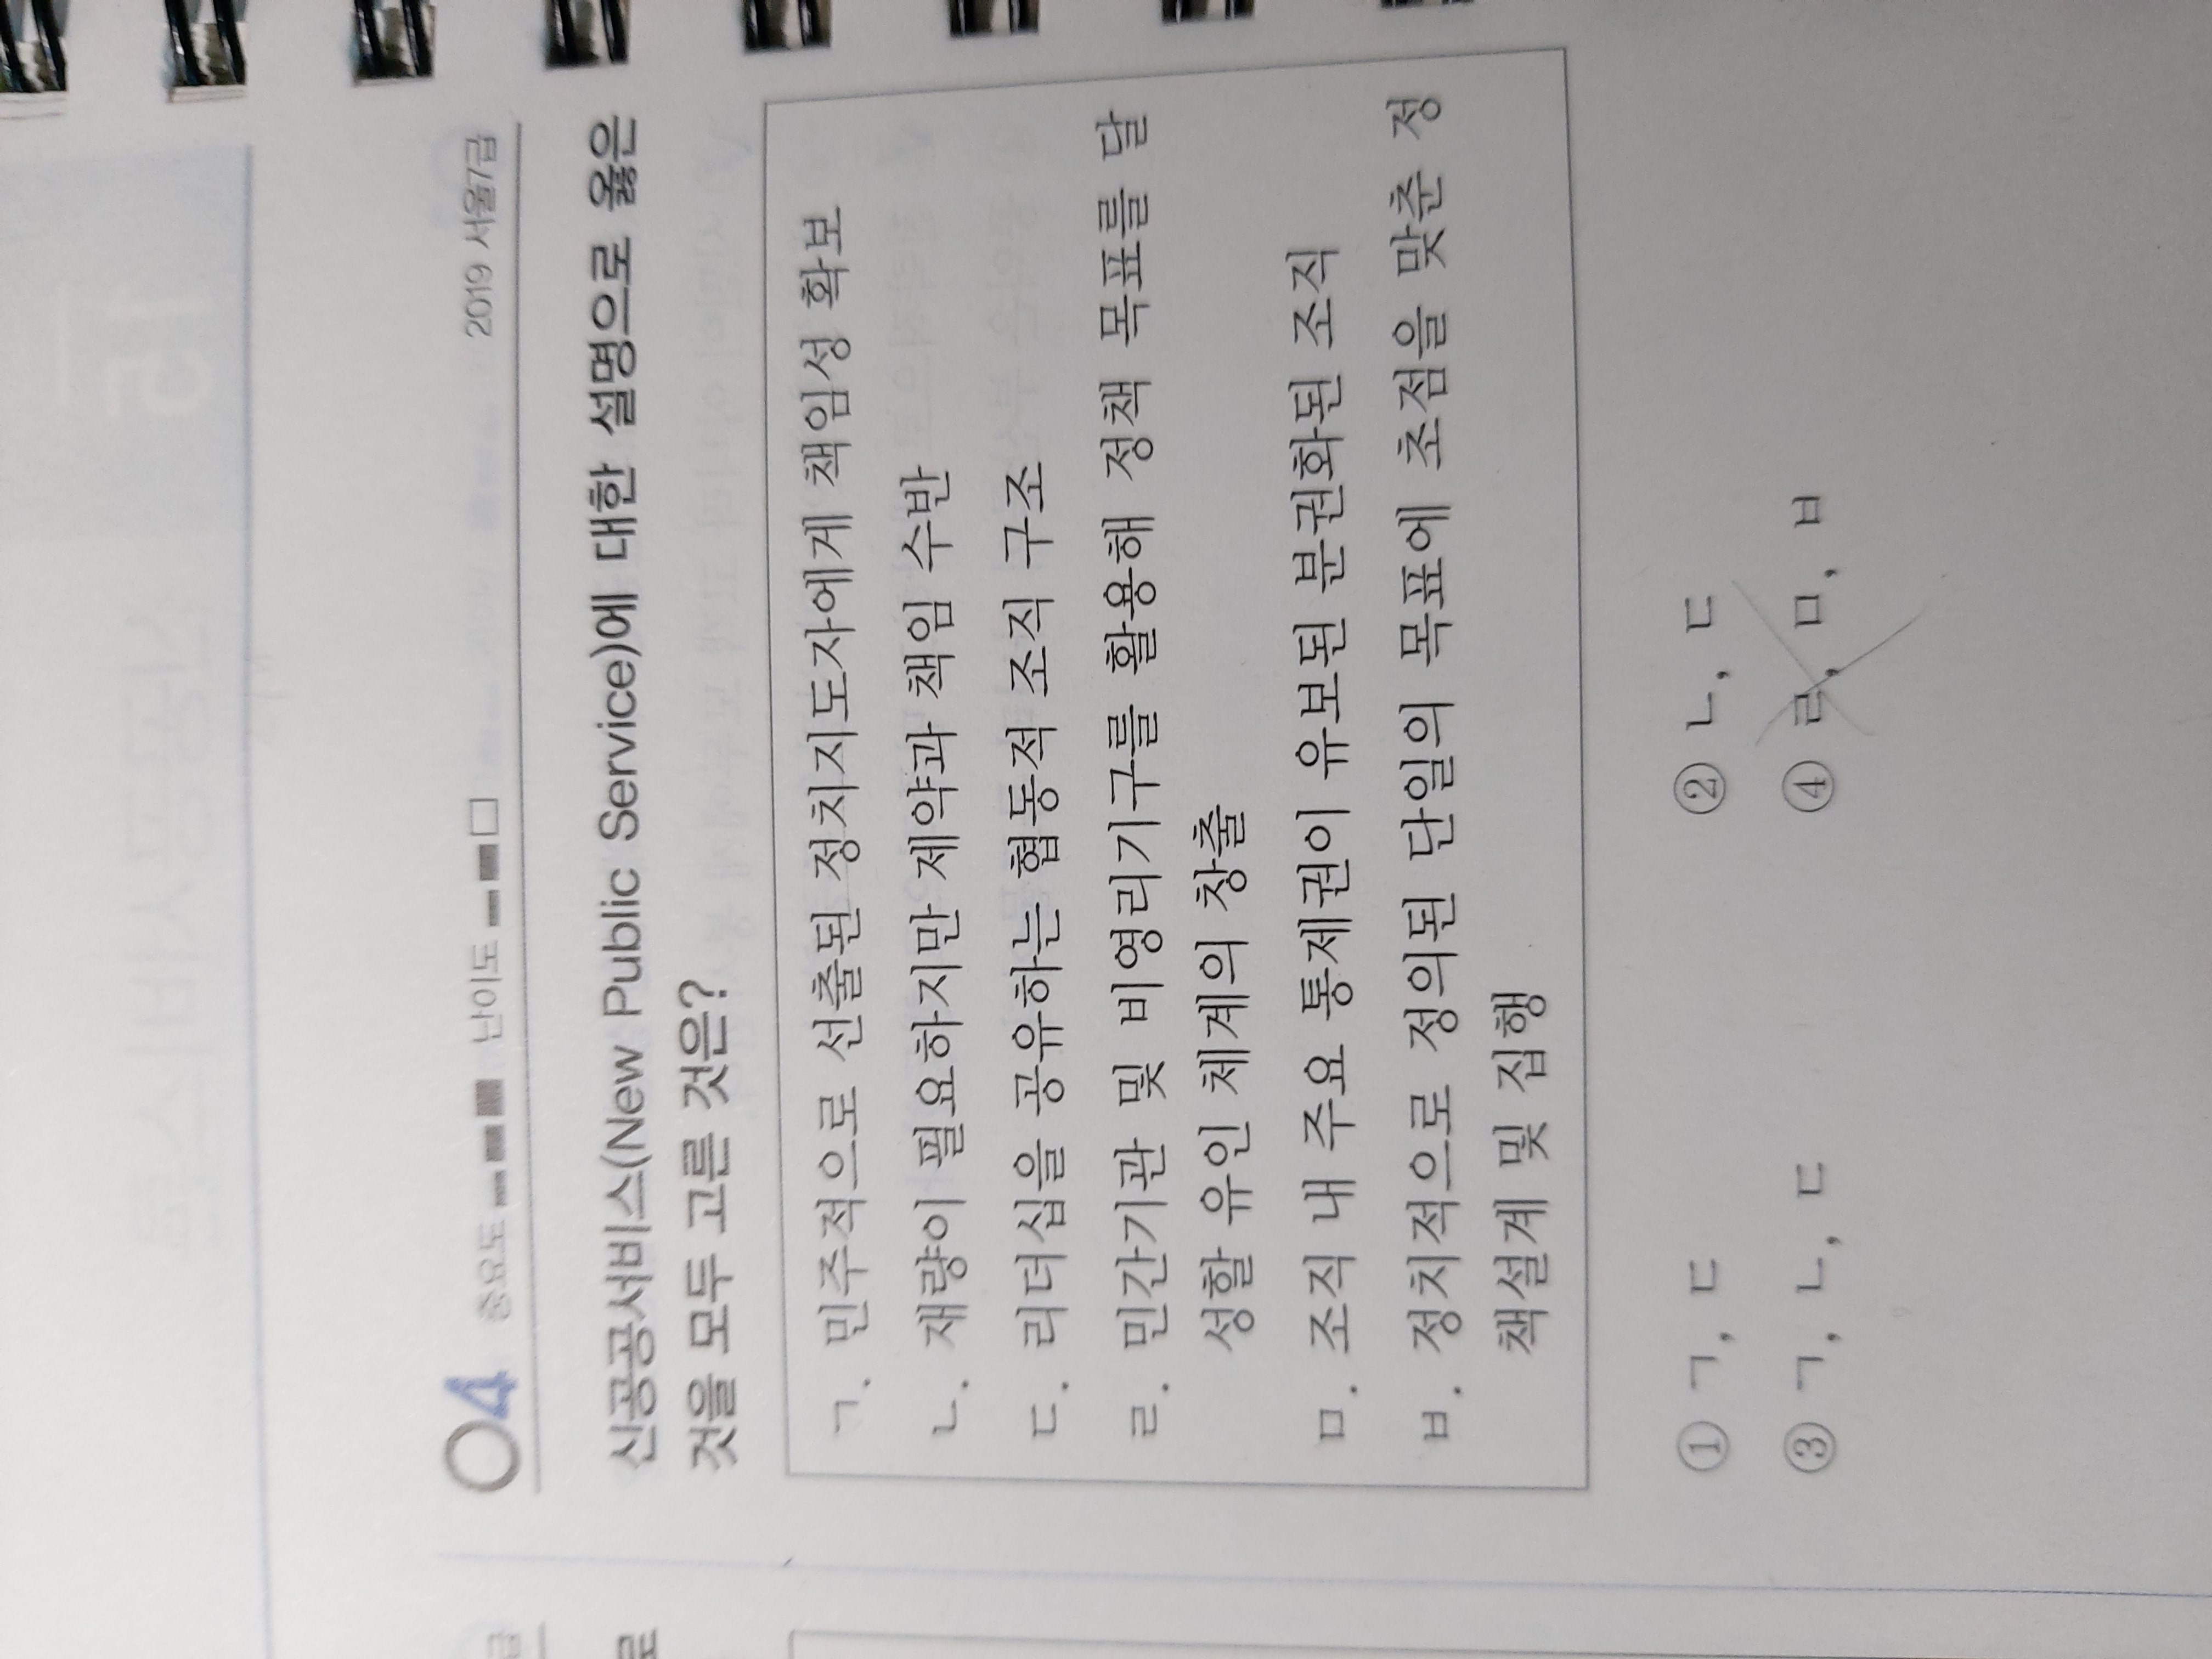 04 중요도 난이도 2019 서울7급
신공공서비스(New Public Service)에 대한 설명으로 옳은
것을 모두 고른 것은?
ㄱ. 민주적으로 선출된 정치지도자에게 책임성 확보
ㄴ. 재량이 필요하지만 제약과 책임 수반
ㄷ. 리더십을 공유하는 협동적 조직 구조
ㄹ. 민간기관 및 비영리기구를 활용해 정책 목표를 달
성할 유인 체계의 창출
ㅁ. 조직 내 주요 통제권이 유보된 분권화된 조직
ㅂ. 정치적으로 정의된 단일의 목표에 초점을 맞춘 정
책설계 및 집행
① ㄱ, ㄷ ② ㄴ, ㄷ
③ ㄱ, ㄴ, ㄷ ④ ㄹ, ㅁ, ㅂ
급
로